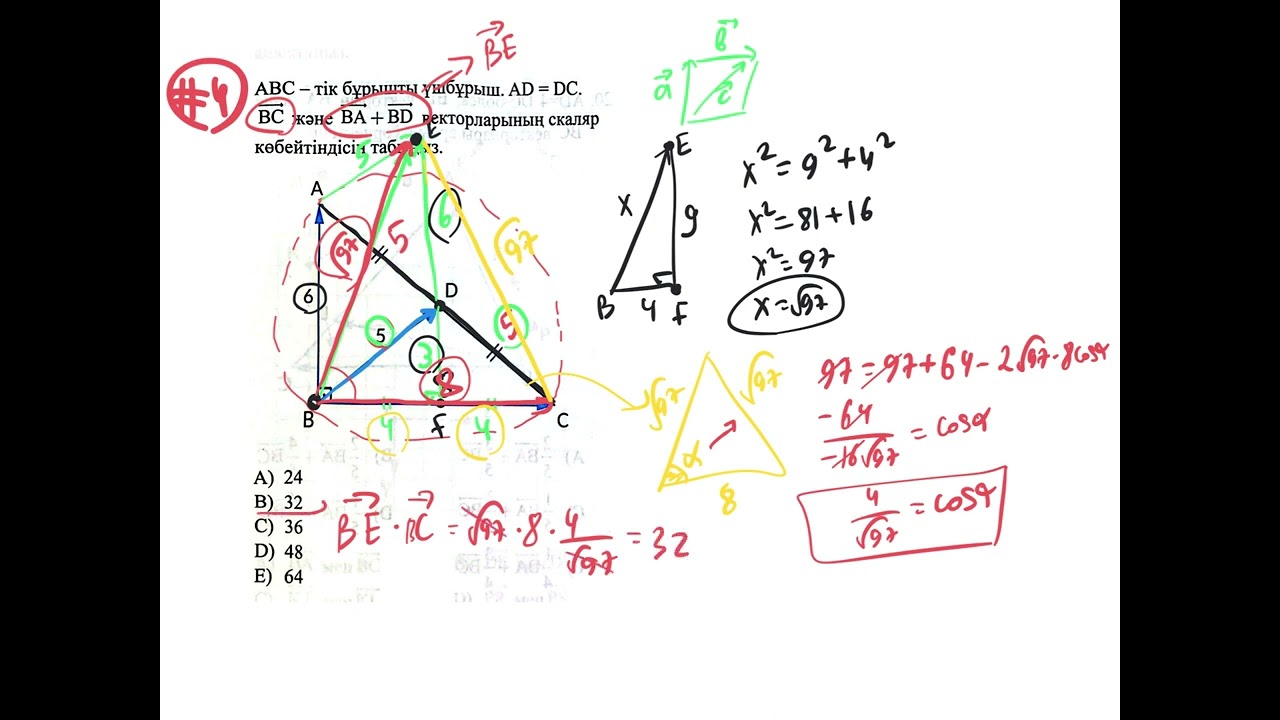 #4
ABC – тік бұрышты үшбұрыш. AD = DC.
BC және BA + BD векторларының скаляр
көбейтіндісін
BE
a
b
c
E
5
A
√97
5
6
√97
6
D
5
5
3
8
B
4
F
4
C
E
x
9
B
4
F
x² = 9² + 4²
x² = 81 + 16
x² = 97
x = √97
√97
√97
α
8
97 = 97 + 64 - 2√97 · 8cosα
-64 / -16√97 = cosα
4 / √97 = cosα
A) 24
B) 32
C) 36
D) 48
E) 64
BE · BC = √97 · 8 · 4 / √97 = 32